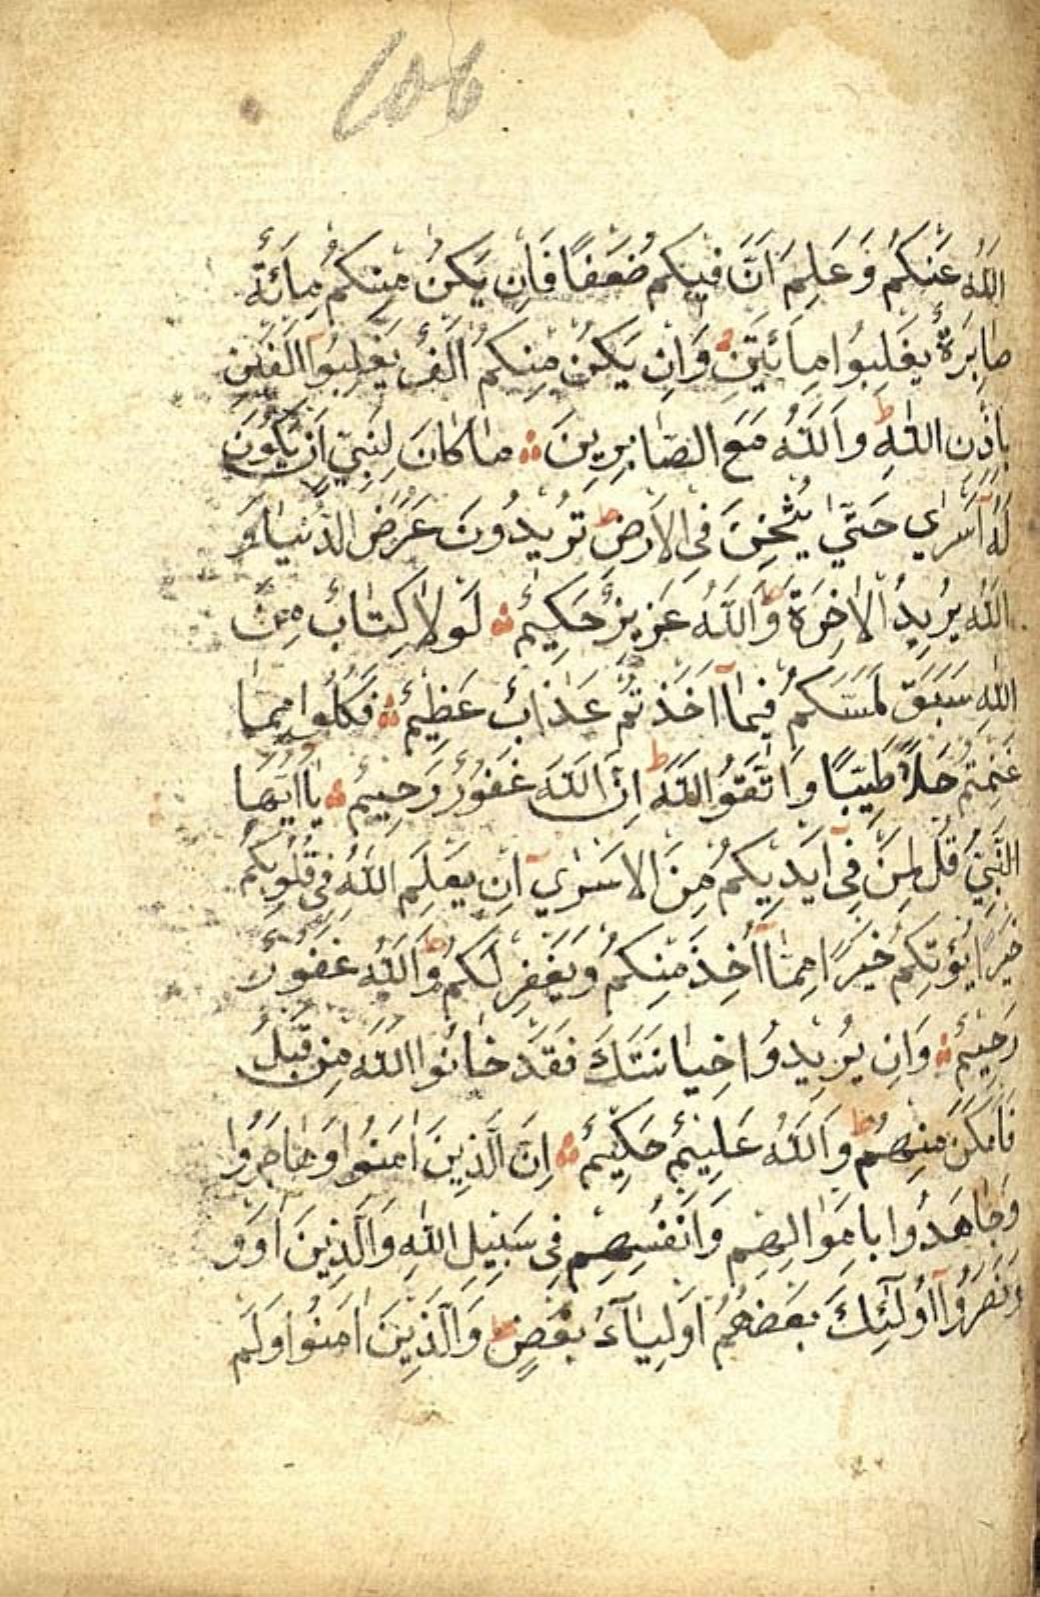 اللهُ عَنْكُمْ وَعَلِمَ اَنَّ فيكُمْ ضُعَفًا فَاِنْ يَكُنْ مِنْكُمْ مِاَئَةٌ
صٰابِرَةٌ يَغْلِبُوا مِاَئَتَيْنِ وَاِنْ يَكُنْ مِنْكُمْ اَلْفٌ يَغْلِبُوا اَلْفَيْنِ
بِاِذْنِ اللهِ ط وَاللهُ مَعَ الصّٰابِرينَ ؞ مٰا كٰانَ لِنَبِيٍّ اَنْ يَكُونَ
لَهُ اَسْرٰي حَتّٰي يُثْخِنَ فِى الْاَرْضِ ط تُريدُونَ عَرَضَ الدُّنْيٰا وَ
اللهُ يُريدُ الْاٰخِرَةَ ط وَاللهُ عَزيزٌ حَكيمٌ ؞ لَوْلٰا كِتٰابٌ مِنَ
اللهِ سَبَقَ لَمَسَّكُمْ فيمٰا اَخَذْتُمْ عَذٰابٌ عَظيمٌ ؞ فَكُلُوا مِمّٰا
غَنِمْتُمْ حَلٰالًا طَيِّبًا وَاتَّقُوا اللهَ ط اِنَّ اللهَ غَفُورٌ رَحيمٌ ؞ يٰا اَيُّهَا
النَّبِيُّ قُلْ لِمَنْ فى اَيْديكُمْ مِنَ الْاَسْرٰي اِنْ يَعْلَمِ اللهُ فى قُلُوبِكُمْ
خَيْرًا يُؤْتِكُمْ خَيْرًا مِمّٰا اُخِذَ مِنْكُمْ وَيَغْفِرْ لَكُمْ ط وَاللهُ غَفُورٌ
رَحيمٌ ؞ وَاِنْ يُريدُوا خِيٰانَتَكَ فَقَدْ خٰانُوا اللهَ مِنْ قَبْلُ
فَاَمْكَنَ مِنْهُمْ ط وَاللهُ عَليمٌ حَكيمٌ ؞ اِنَّ الَّذينَ اٰمَنُوا وَهٰاجَرُوا
وَجٰاهَدُوا بِاَمْوٰالِهِمْ وَاَنْفُسِهِمْ فى سَبيلِ اللهِ وَالَّذينَ اٰوَوْ
وَنَصَرُوا اُولٰئِكَ بَعْضُهُمْ اَوْلِيٰاءُ بَعْضٍ ط وَالَّذينَ اٰمَنُوا وَلَمْ